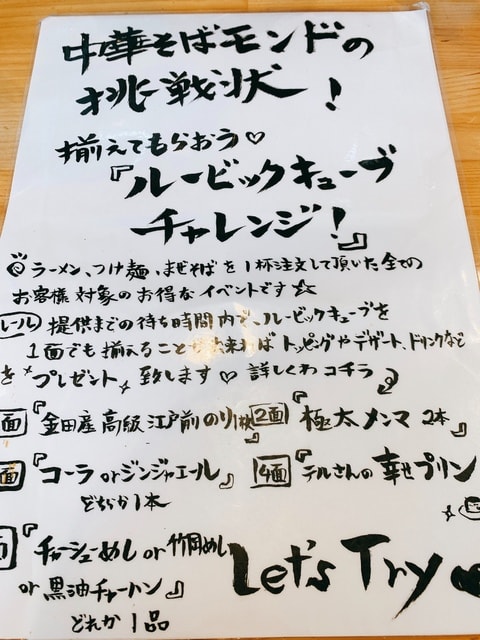 中華そばモンドの
挑戦状!
揃えてもらおう♡
『ルービックキューブ
チャレンジ!』
◎ラーメン、つけ麺、まぜそばを1杯注文して頂いた全ての
お客様対象のお得なイベントです☆
ルール 提供までの待ち時間内で、ルービックキューブを
1面でも揃えることが出来ればトッピングやデザート、ドリンクなど
を"プレゼント"致します♡ 詳しくわコチラ
面『金田産高級江戸前のり1枚』 2面『極太メンマ2本』
面『コーラorジンジャエール』 4面『テルさんの幸せプリン
どちらか1本
『チャーシューめしor竹岡めし
or黒油チャーハン』
どれか1品
Let's Try